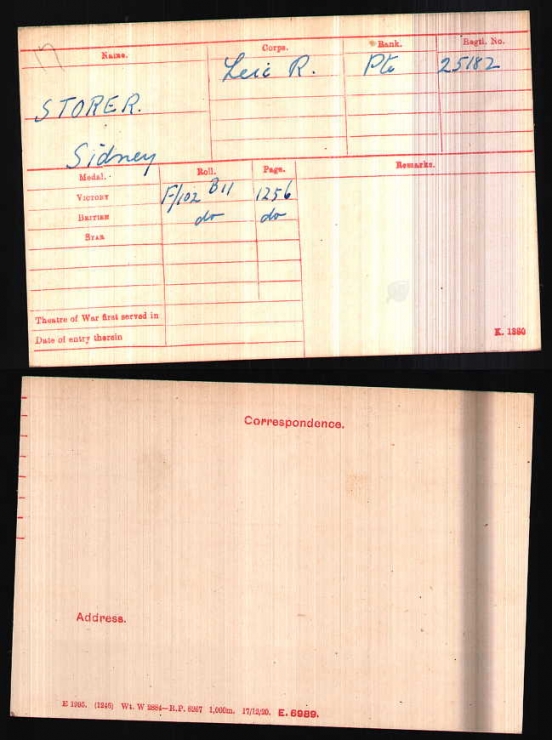 Name. Corps. Rank. Regtl. No.
Leic R. Pte 25182
STORER.
Sidney
Medal. Roll. Page. Remarks.
VICTORY F/102 B11 1256
BRITISH do do
STAR
Theatre of War first served in
Date of entry therein
K. 1380
Correspondence.
Address.
E 1205. (1246) Wt. W 2884—R.P. 8267 1,000m. 17/12/20. E. 6989.